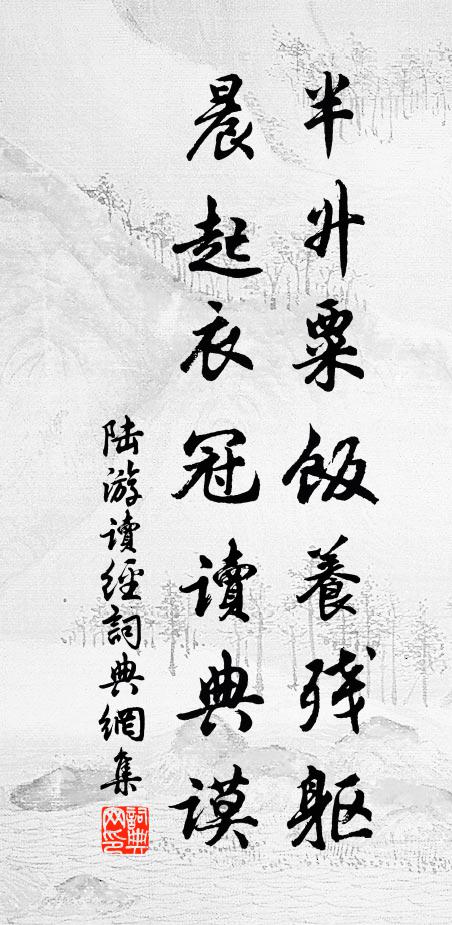 半升粟飯養殘軀
晨起衣冠讀典謨
陆游讀經詞典網集
詞典網印